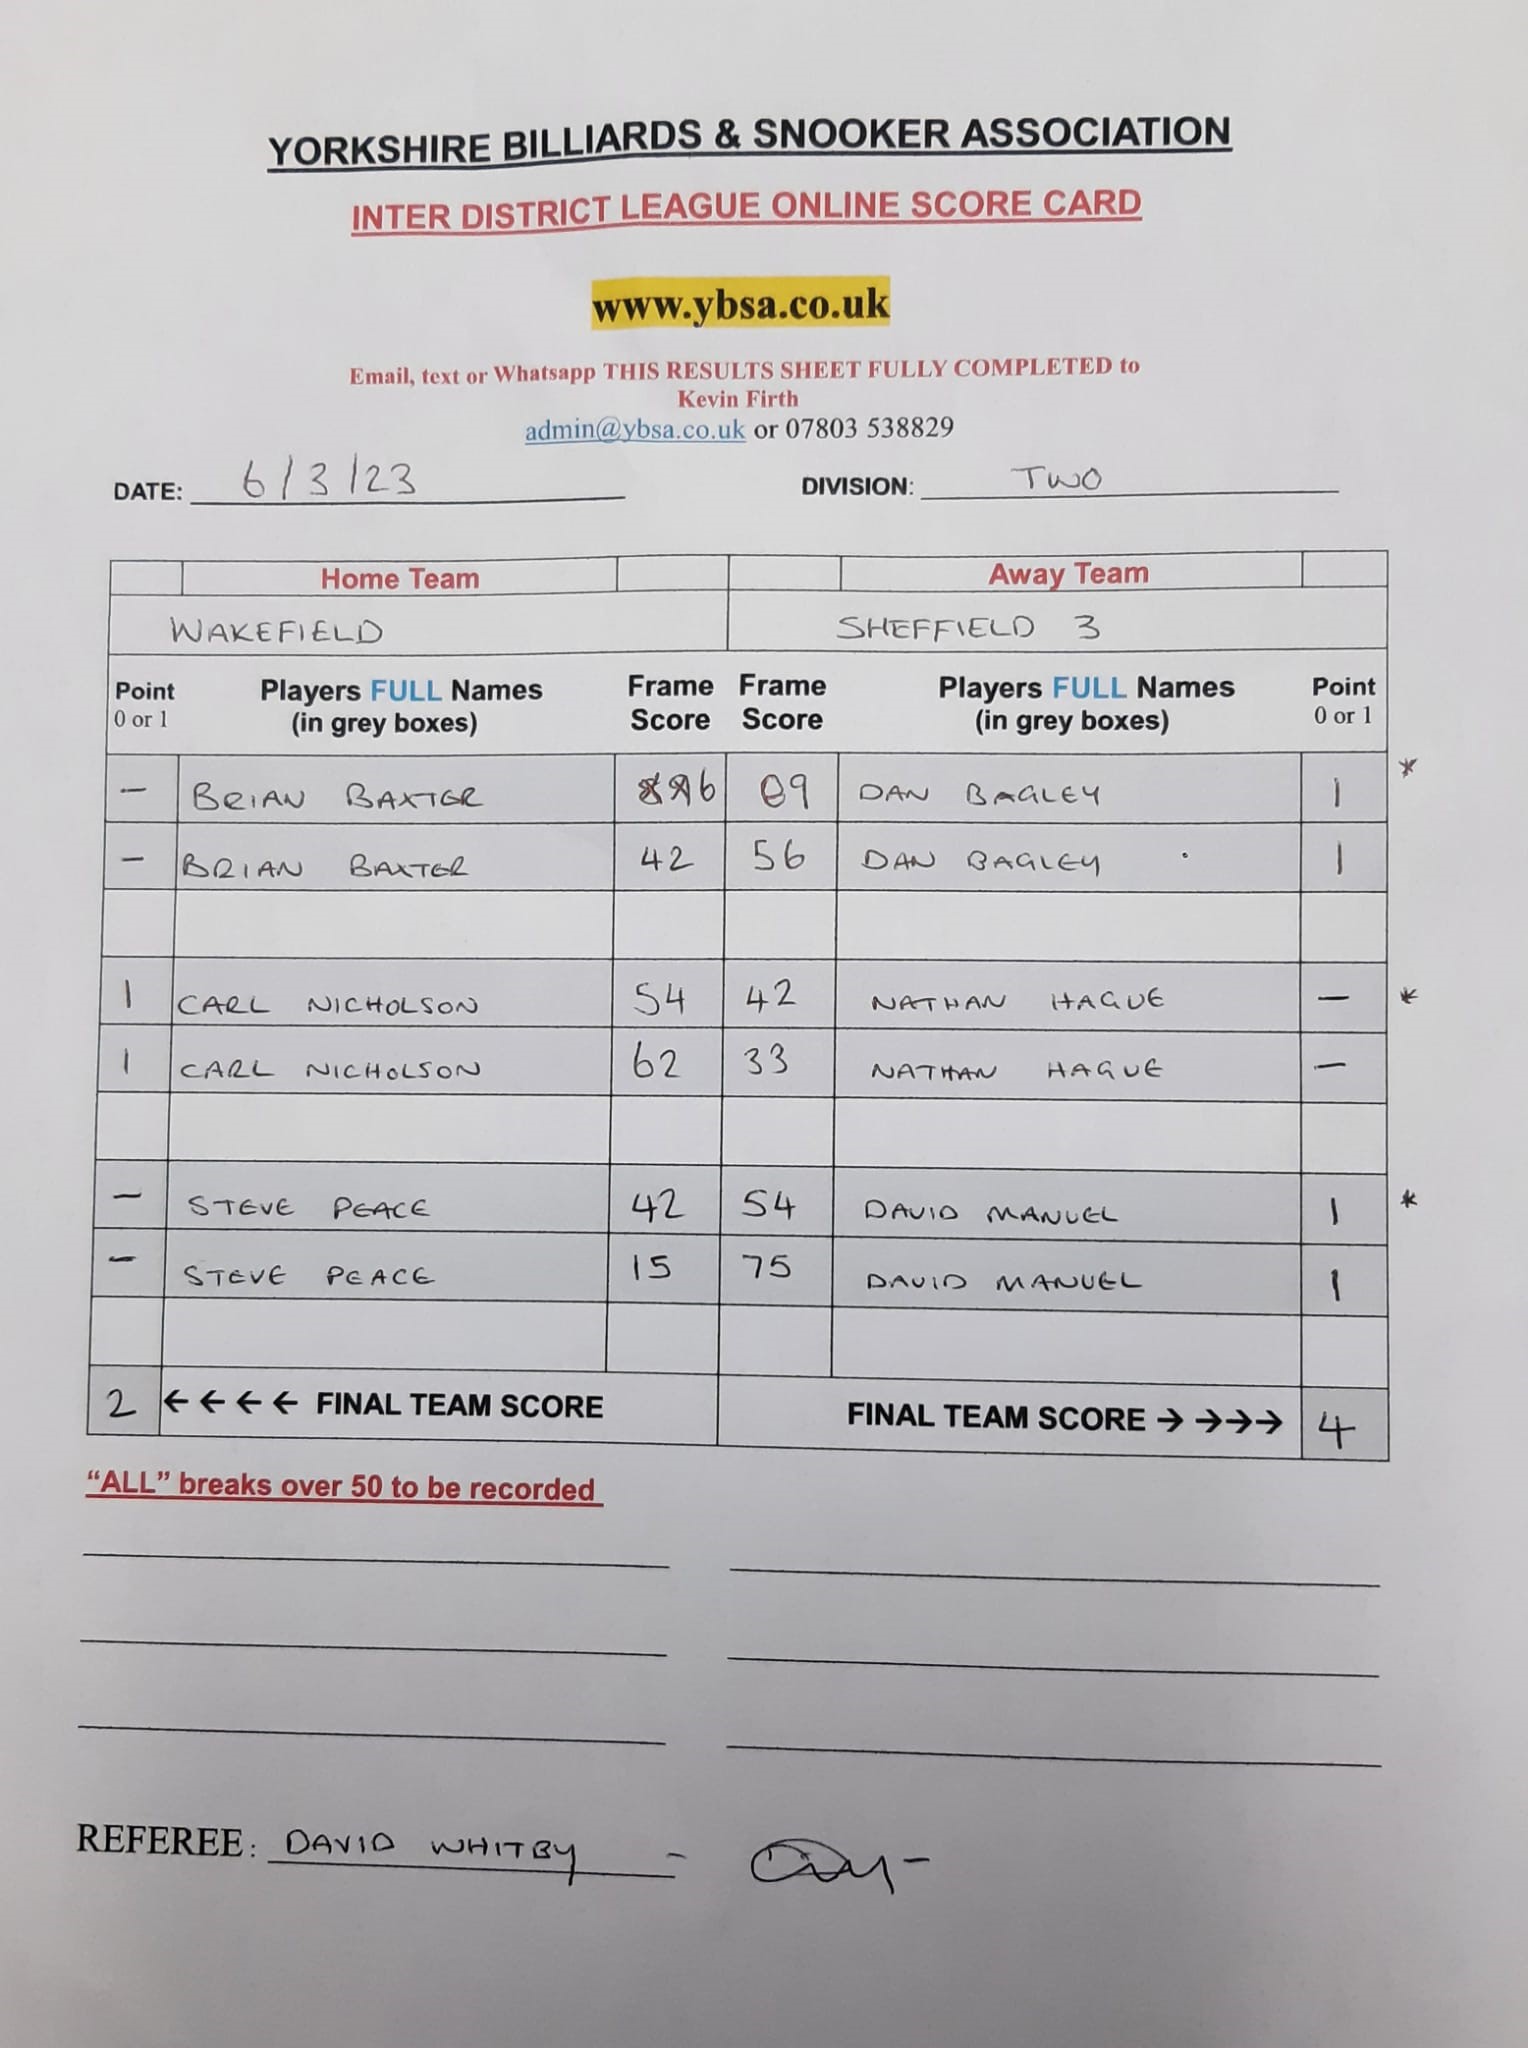 YORKSHIRE BILLIARDS & SNOOKER ASSOCIATION
INTER DISTRICT LEAGUE ONLINE SCORE CARD
www.ybsa.co.uk
Email, text or Whatsapp THIS RESULTS SHEET FULLY COMPLETED to
Kevin Firth
admin@ybsa.co.uk or 07803 538829
DATE: 6/3/23 DIVISION: TWO
Home Team Away Team
WAKEFIELD SHEFFIELD 3
Point Players FULL Names Frame Frame Players FULL Names Point
0 or 1 (in grey boxes) Score Score (in grey boxes) 0 or 1
- BRIAN BAXTER DAN BAGLEY 1 *
- BRIAN BAXTER 42 56 DAN BAGLEY 1
1 CARL NICHOLSON 54 42 NATHAN HAGUE - *
1 CARL NICHOLSON 62 33 NATHAN HAGUE -
- STEVE PEACE 42 54 DAVID MANUEL 1 *
- STEVE PEACE 15 75 DAVID MANUEL 1
2 ←←←← FINAL TEAM SCORE FINAL TEAM SCORE → →→→ 4
“ALL” breaks over 50 to be recorded
REFEREE: DAVID WHITBY -